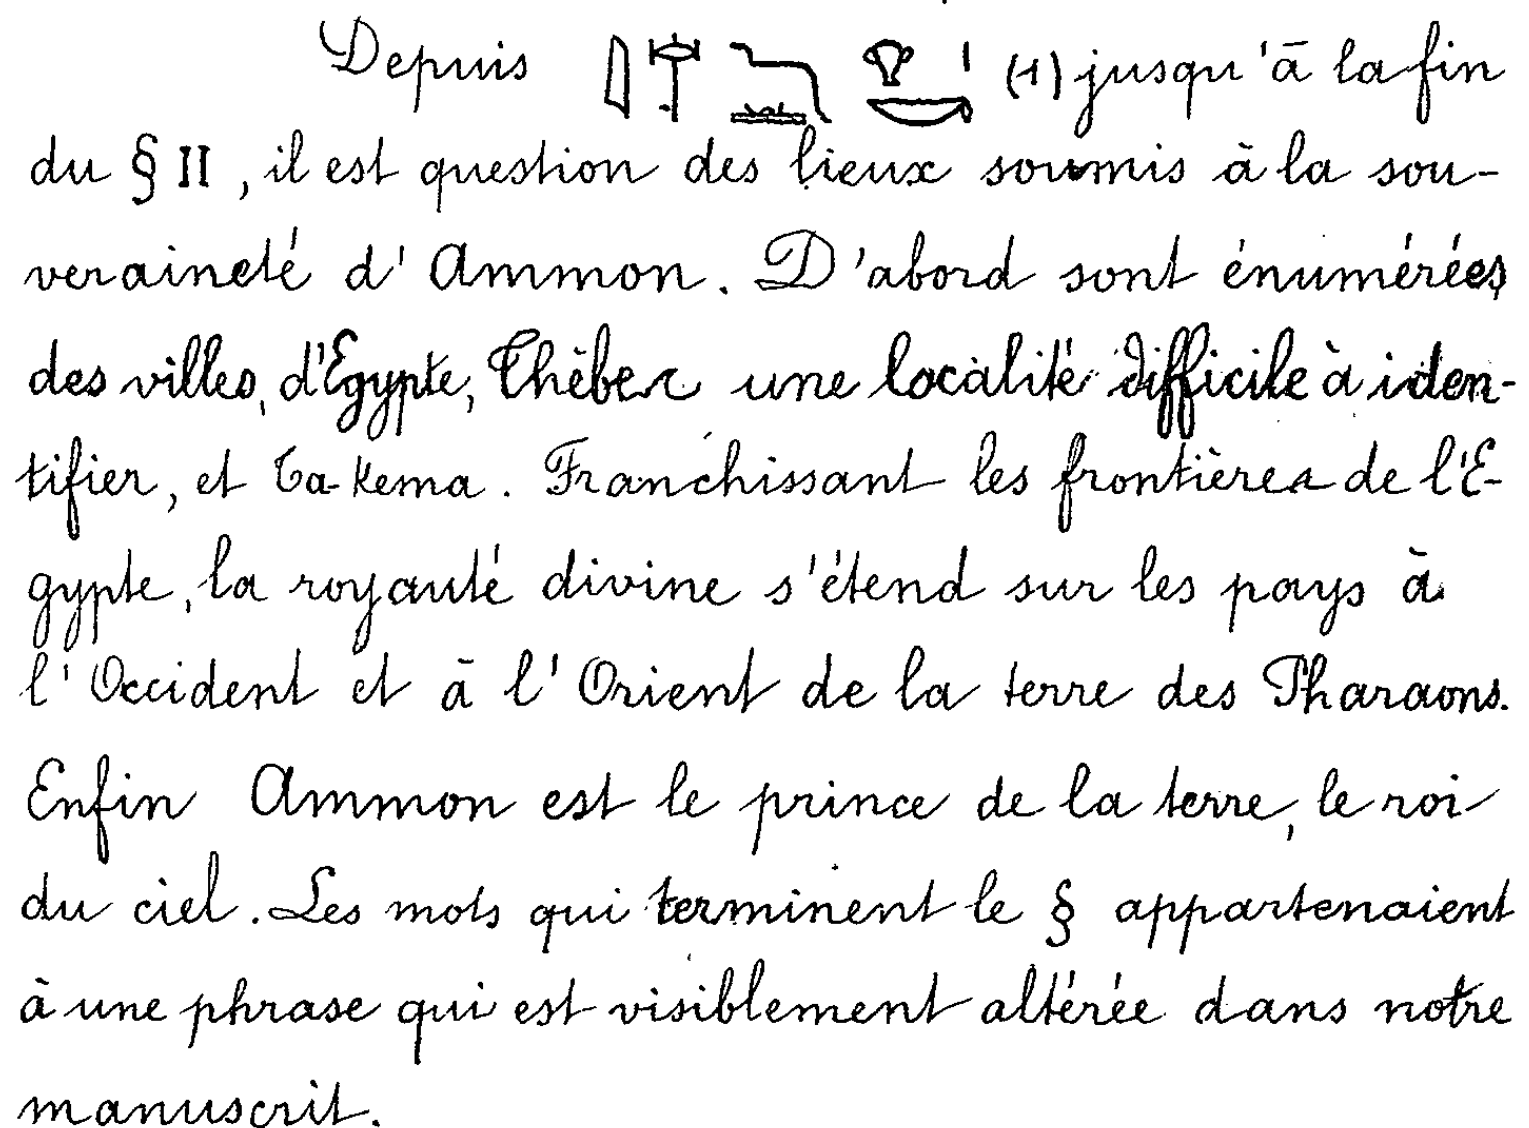 Depuis (1) jusqu'à la fin
du § II, il est question des lieux soumis à la sou-
veraineté d'Ammon. D'abord sont énumérées
des villes, d'Egypte, Thèbes une localité difficile à iden-
tifier, et Ta-Kema. Franchissant les frontières de l'E-
gypte, la royauté divine s'étend sur les pays à
l'Occident et à l'Orient de la terre des Pharaons.
Enfin Ammon est le prince de la terre, le roi
du ciel. Les mots qui terminent le § appartenaient
à une phrase qui est visiblement altérée dans notre
manuscrit.